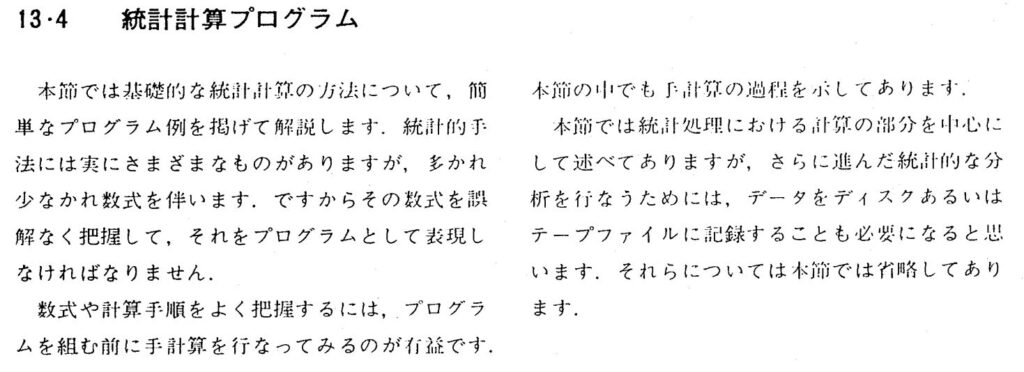 13・4　統計計算プログラム
　本節では基礎的な統計計算の方法について，簡
単なプログラム例を掲げて解説します．統計的手
法には実にさまざまなものがありますが，多かれ
少なかれ数式を伴います．ですからその数式を誤
解なく把握して，それをプログラムとして表現し
なければなりません．
　数式や計算手順をよく把握するには，プログラ
ムを組む前に手計算を行なってみるのが有益です．
本節の中でも手計算の過程を示してあります．
　本節では統計処理における計算の部分を中心に
して述べてありますが，さらに進んだ統計的な分
析を行なうためには，データをディスクあるいは
テープファイルに記録することも必要になると思
います．それらについては本節では省略してあり
ます．